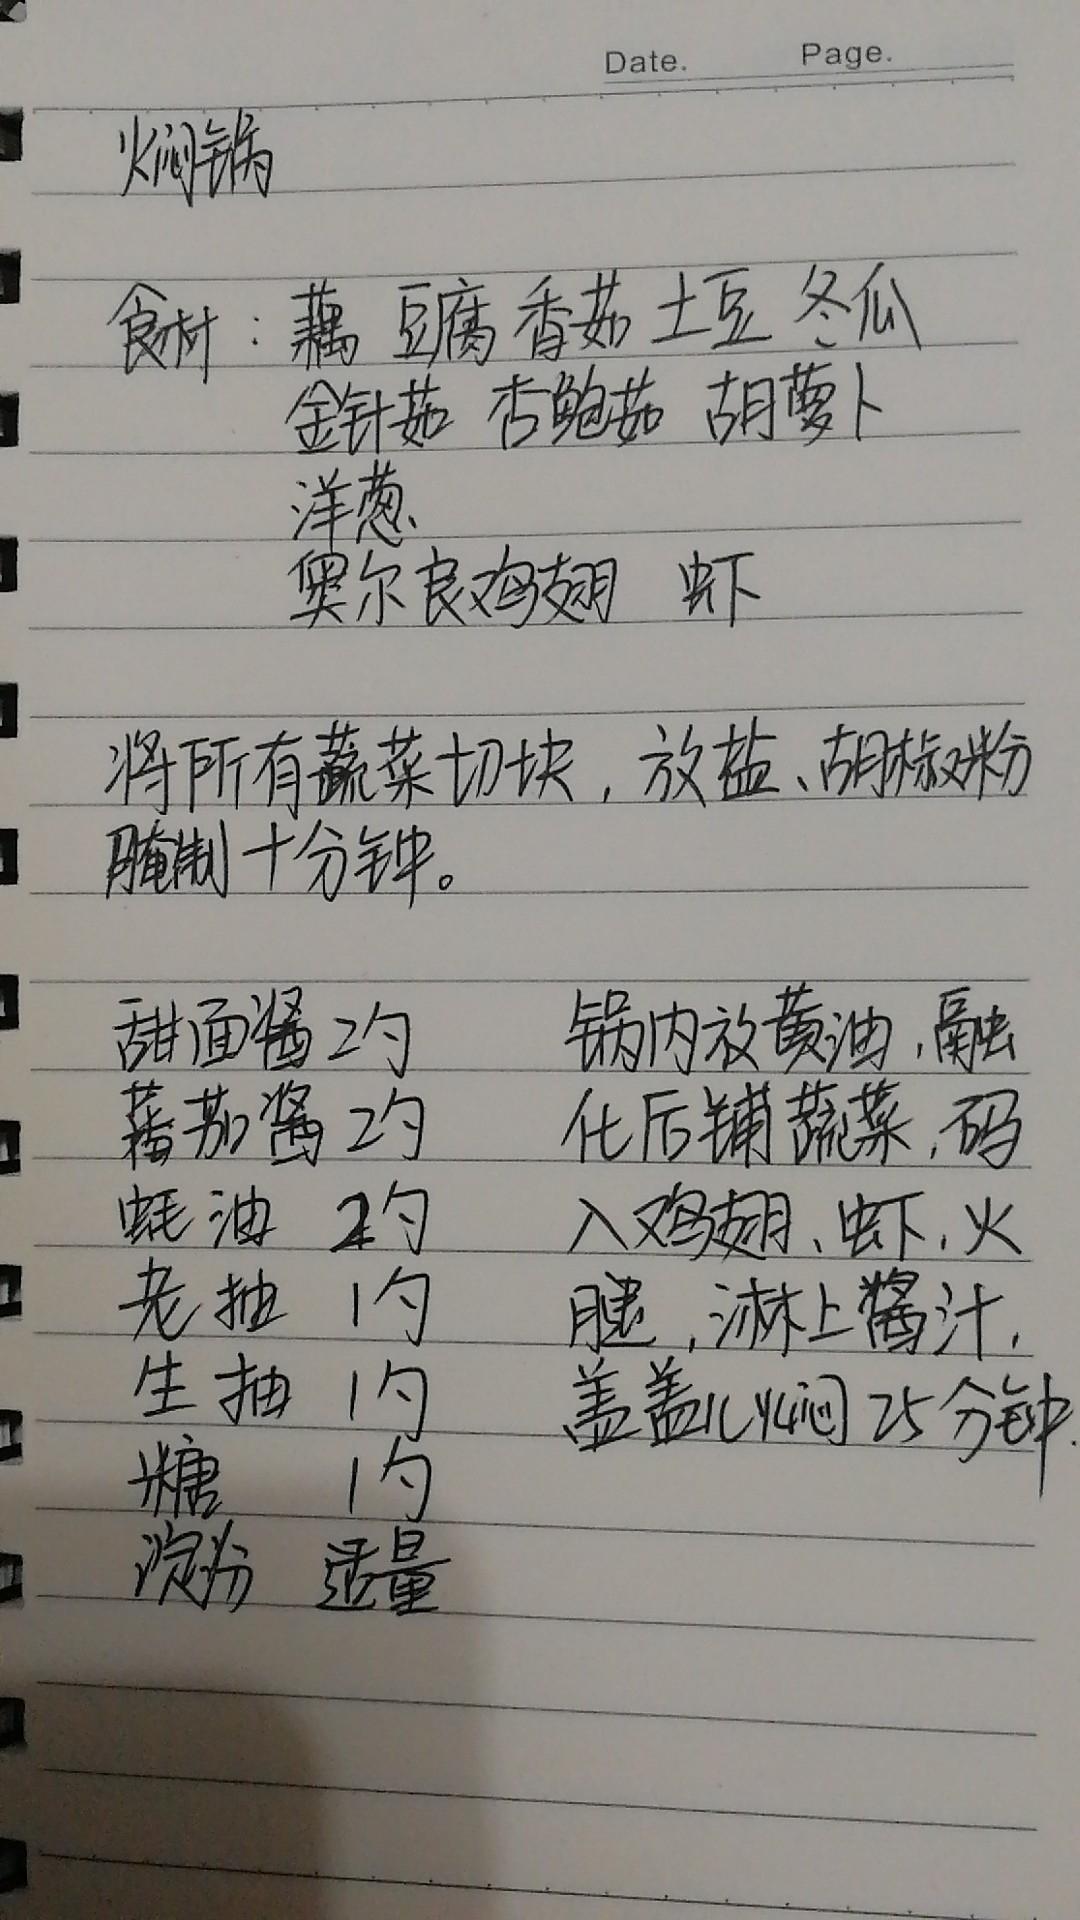 Date. Page.
焖锅
食材：藕 豆腐 香菇 土豆 冬瓜
金针菇 杏鲍菇 胡萝卜
洋葱
奥尔良鸡翅 虾
将所有蔬菜切块，放盐、胡椒粉
腌制十分钟。
甜面酱 2勺
蕃茄酱 2勺
蚝油 2勺
老抽 1勺
生抽 1勺
糖 1勺
淀粉 适量
锅内放黄油，融
化后铺蔬菜，码
入鸡翅、虾、火
腿，淋上酱汁，
盖盖儿焖25分钟.